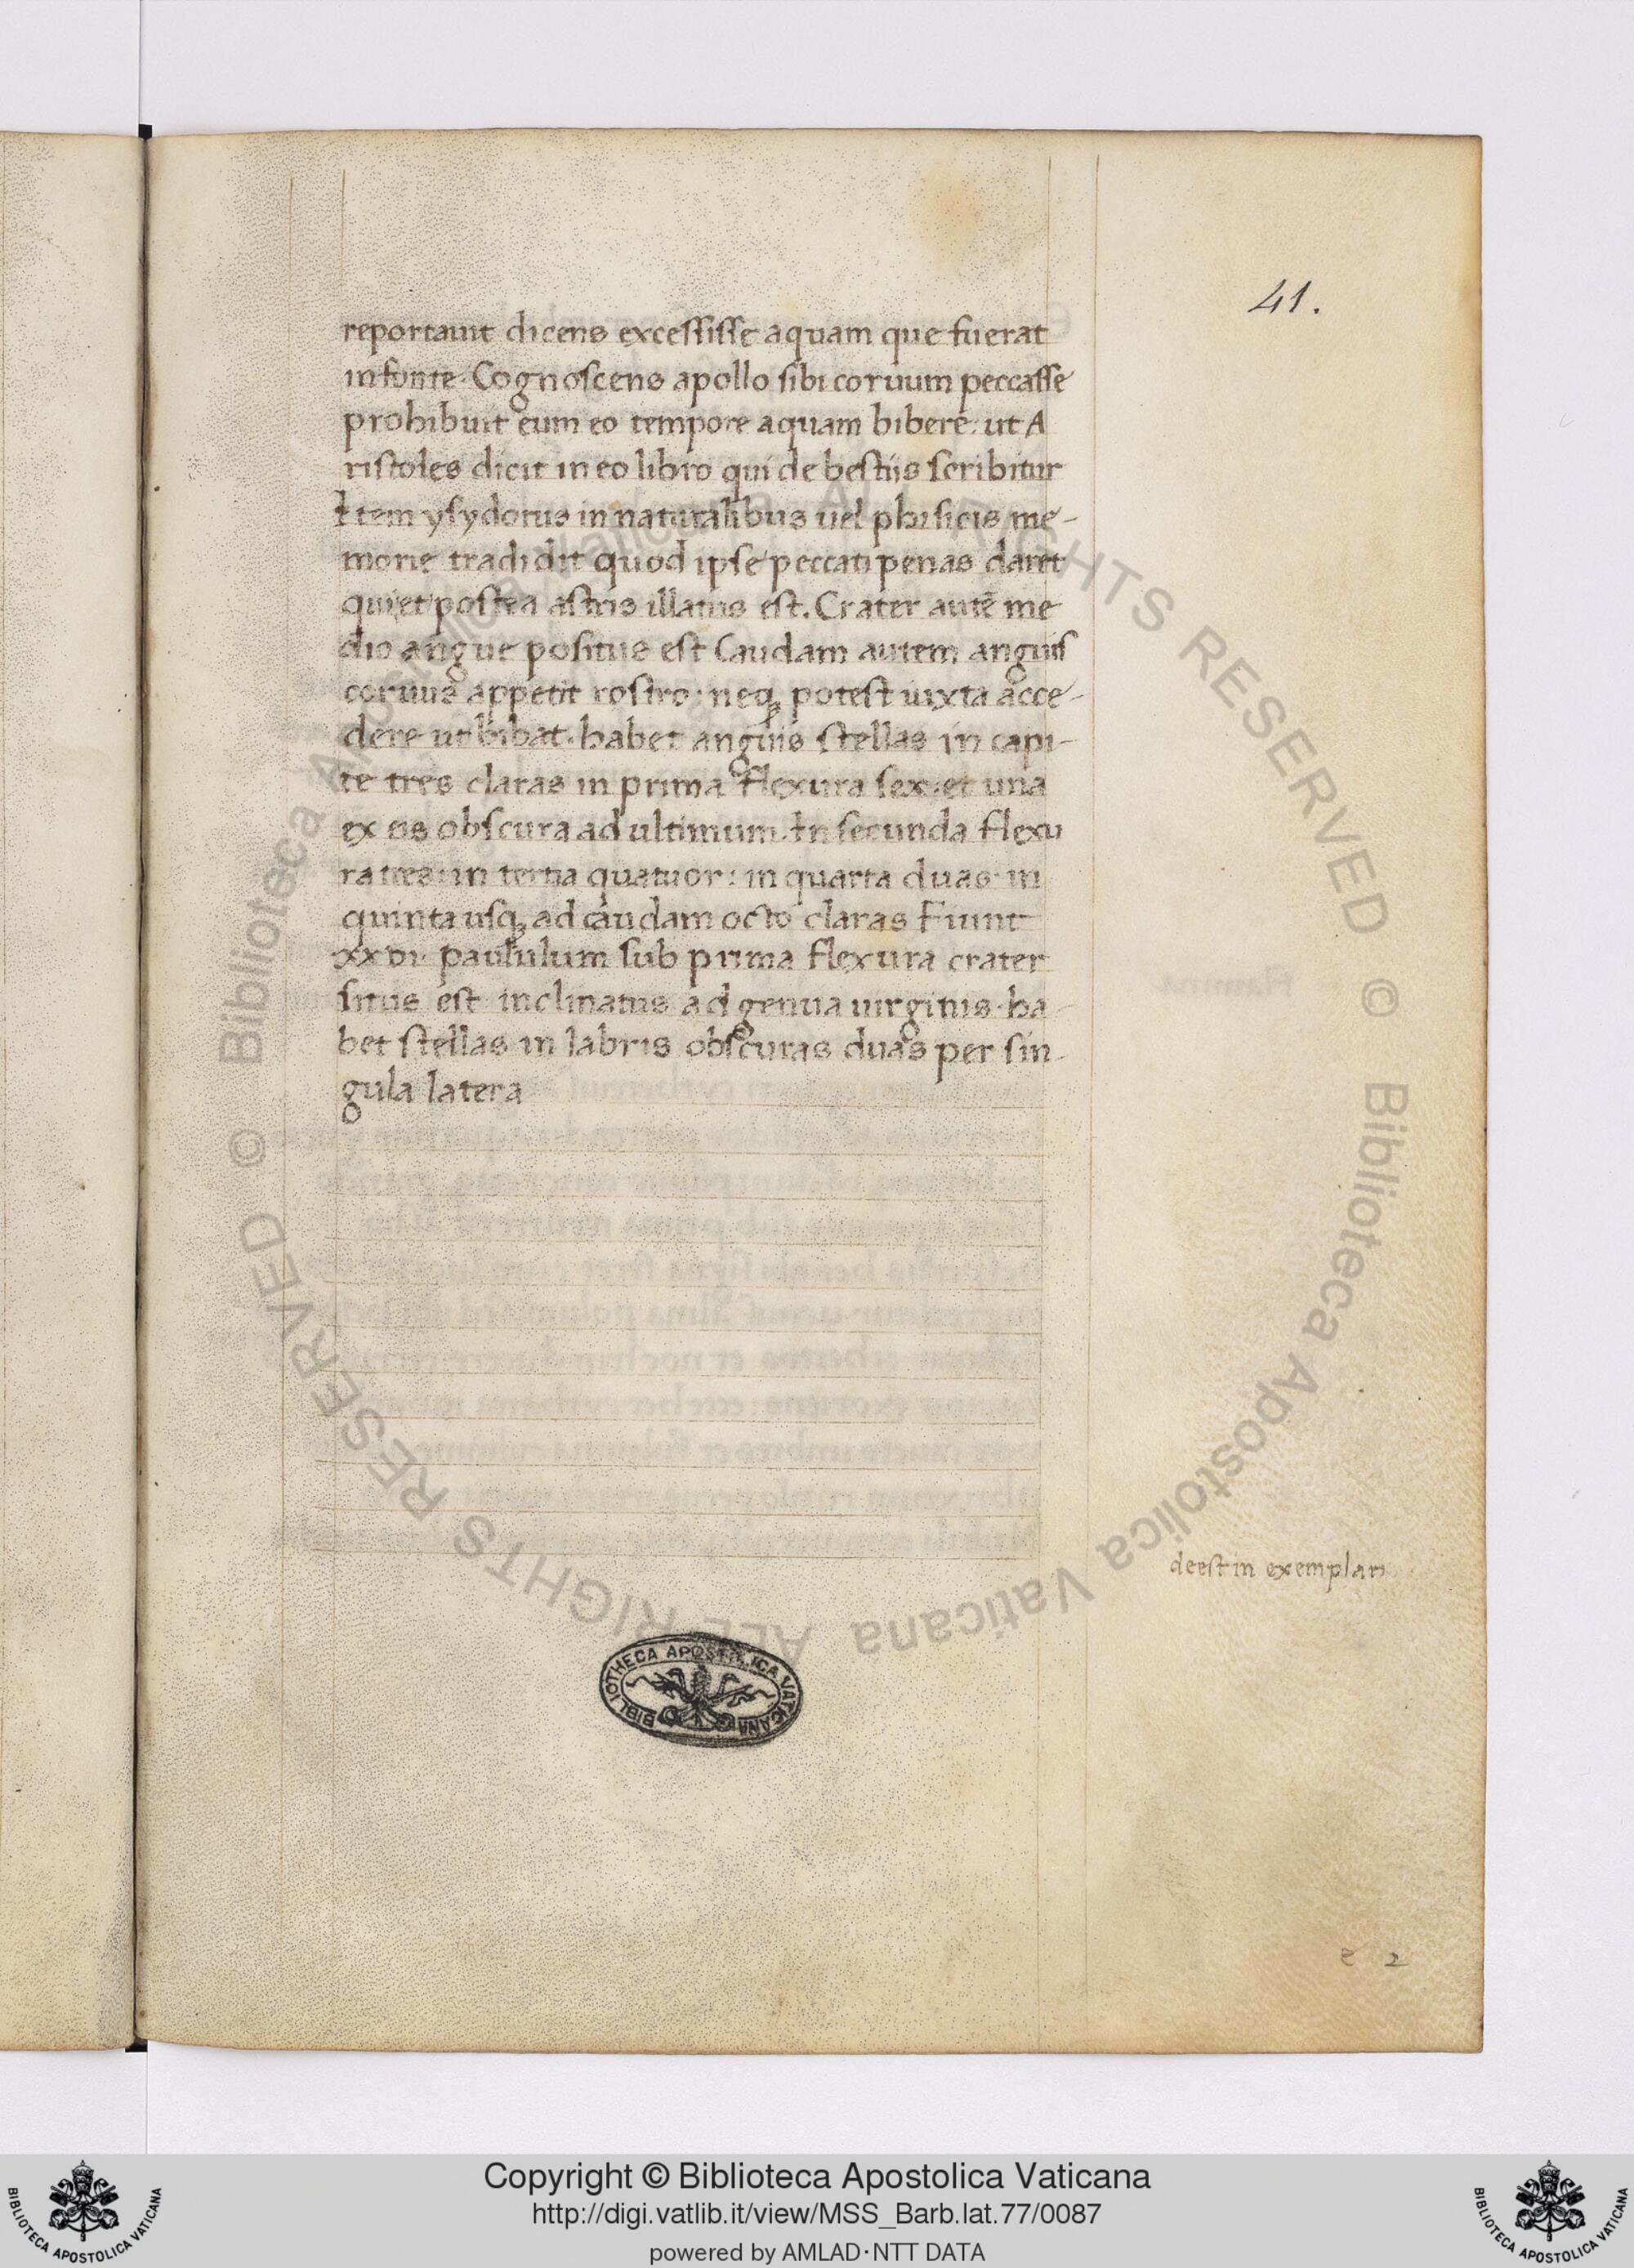 41.
reportauit dicens excessisse aquam que fuerat
in fonte. Cognoscens apollo sibi coruum peccasse
prohibuit eum eo tempore aquam bibere: ut A
ristoles dicit in eo libro qui de bestiis scribitur
Item ysydorus in naturalibus uel phisicis me-
morie tradidit quod ipse peccati penas daret
qui et postea astris illatus est. Crater autē me
dio angue positus est Caudam autem anguis
coruus appetit rostro. neq; potest iuxta acce-
dere ut bibat. habet anguis stellas in capi-
te tres claras in prima flexura sex. et una
ex eis obscura ad ultimum. In secunda flexu
ra tres: in tertia quatuor: in quarta duas. in
quinta usq; ad caudam octo claras Fiunt
xxvi. paululum sub prima flexura crater
situs est inclinatus ad genua uirginis. ha
bet stellas in labris obscuras duas per sin-
gula latera
deest in exemplari
e 2
BIBLIOTHECA APOSTOLICA VATICANA
© Biblioteca Apostolica Vaticana ALL RIGHTS RESERVED © Biblioteca Apostolica Vaticana ALL RIGHTS RESERVED
Copyright © Biblioteca Apostolica Vaticana
http://digi.vatlib.it/view/MSS_Barb.lat.77/0087
powered by AMLAD·NTT DATA
BIBLIOTECA APOSTOLICA VATICANA
BIBLIOTECA APOSTOLICA VATICANA